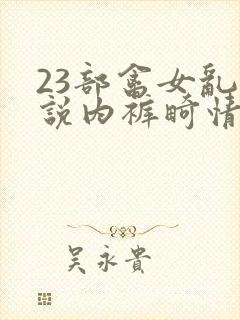 23部畜女亂
說内裤畸情
吳永貴